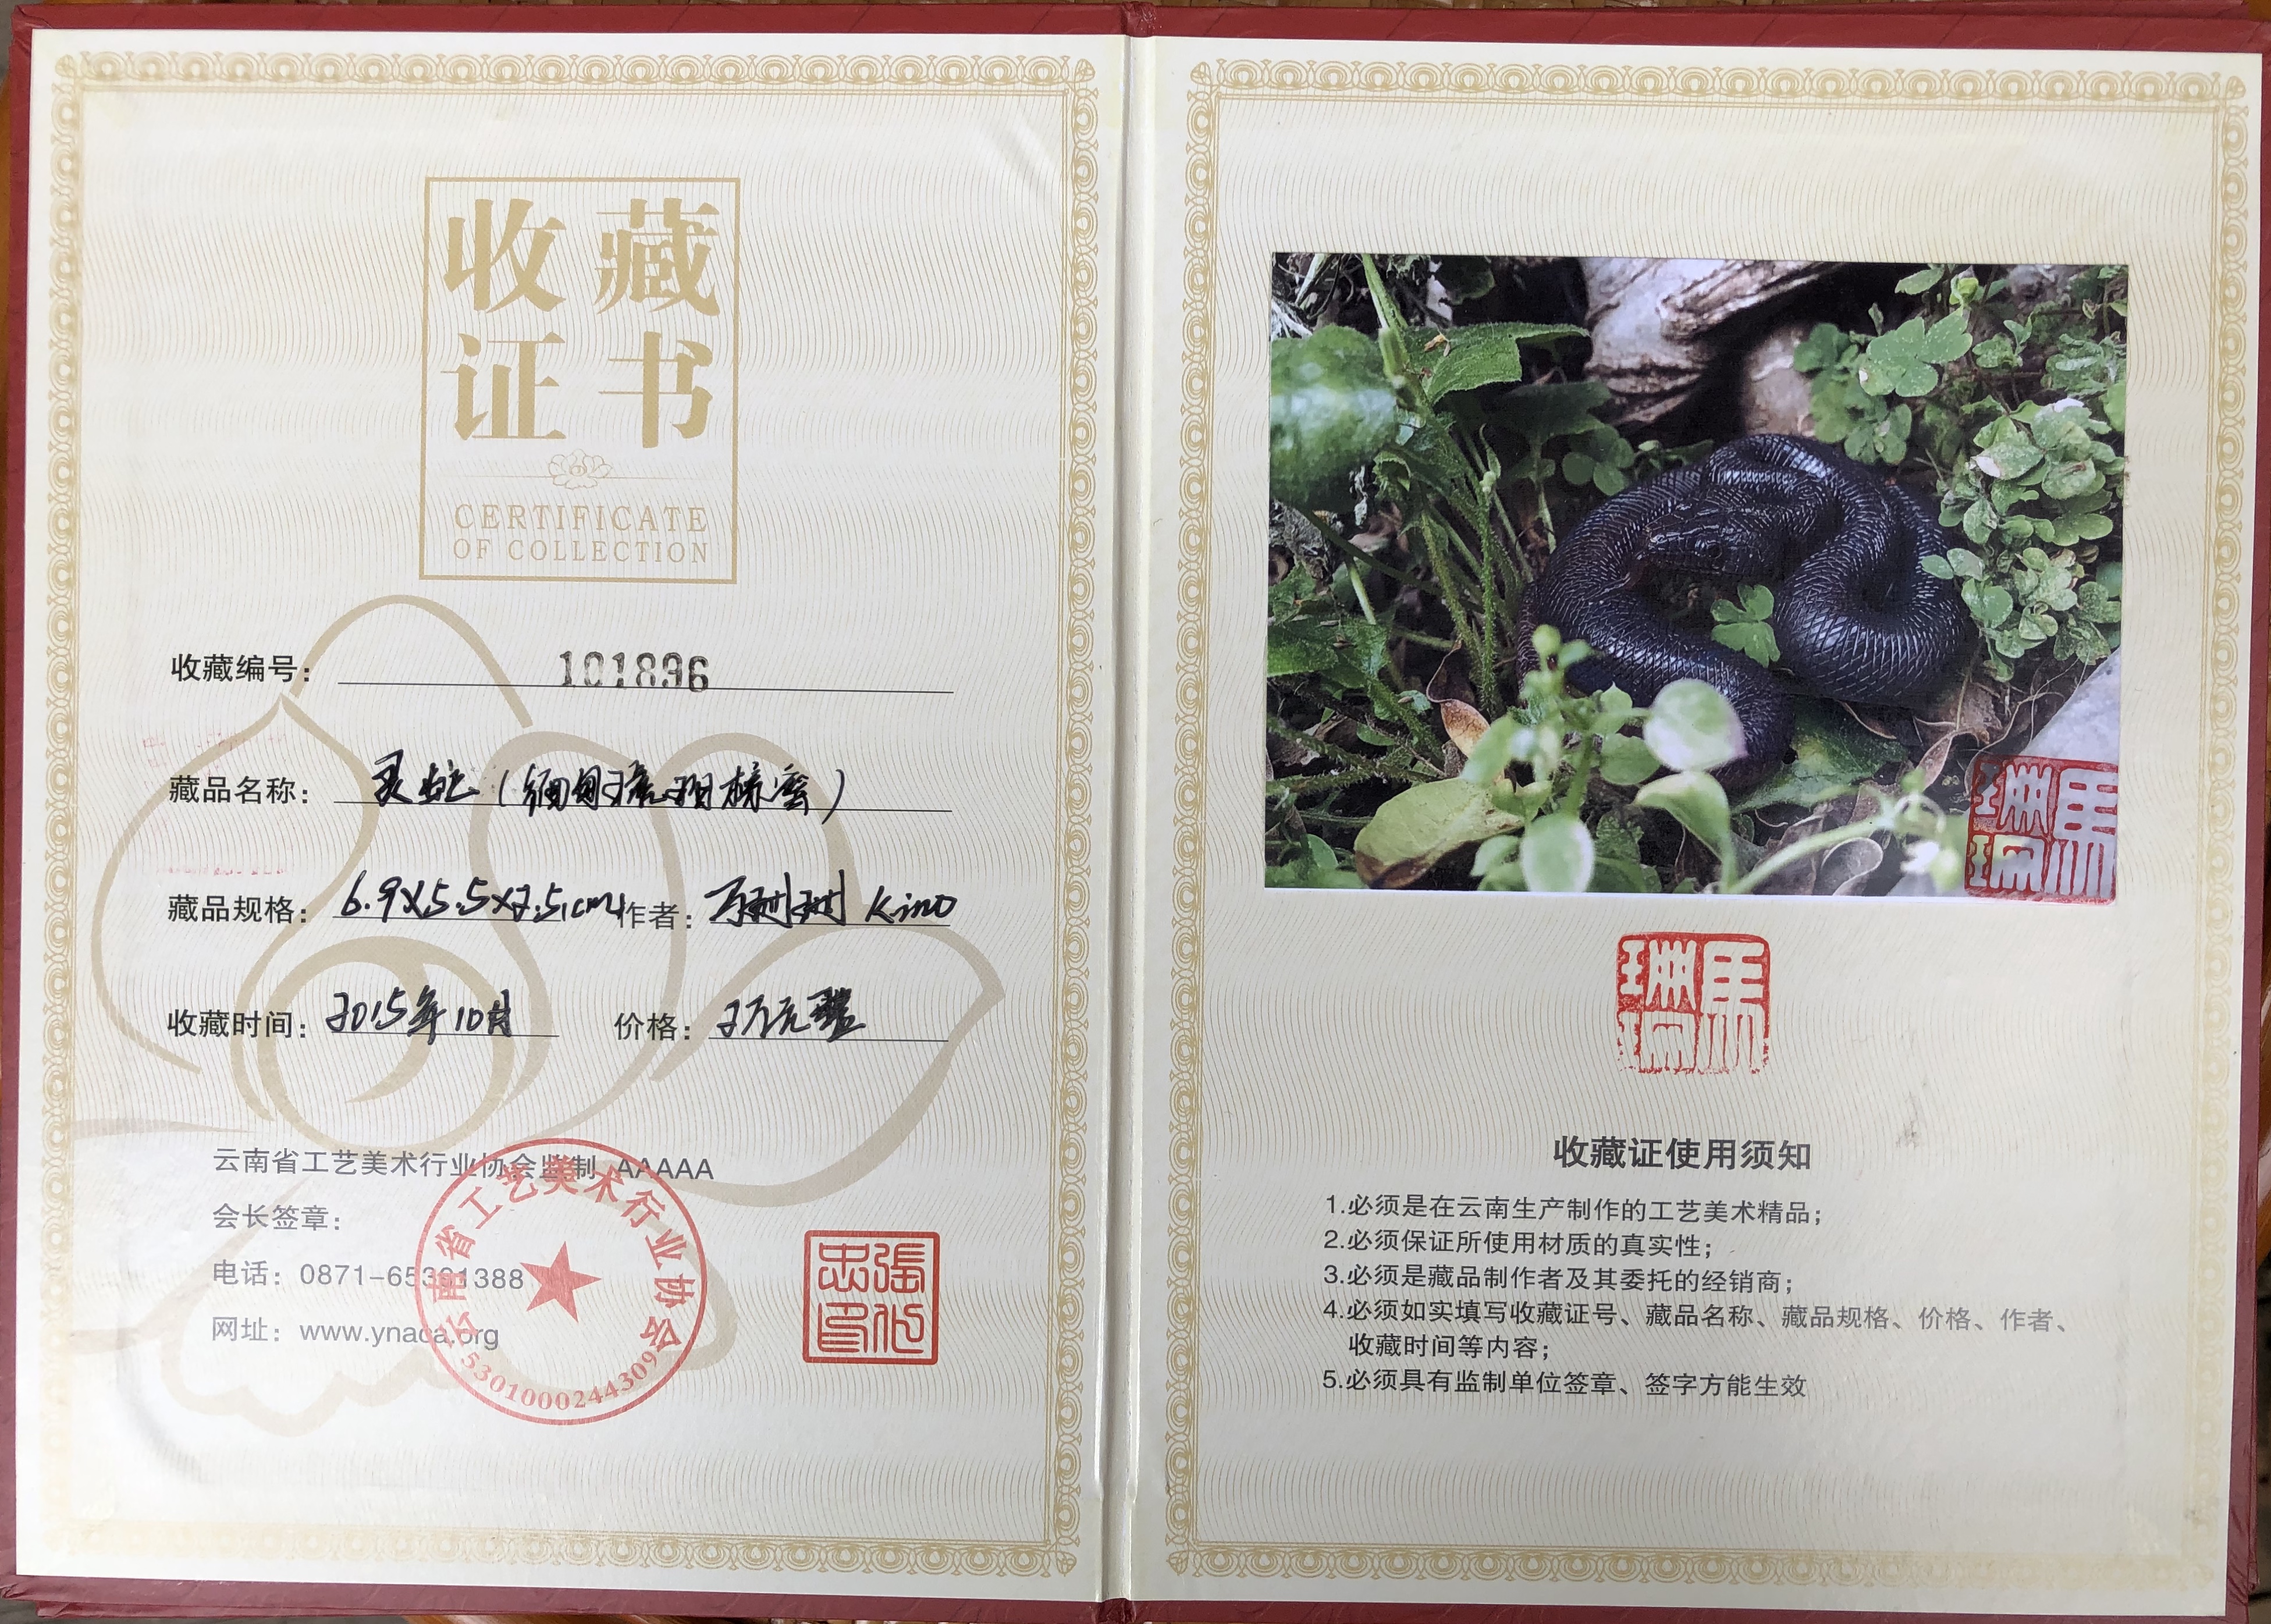 收藏
证书
CERTIFICATE
OF COLLECTION
收藏编号: 101896
藏品名称: 灵蛇（缅甸琥珀 蜜）
藏品规格: 6.9X5.5X2.5cm 作者: Kino
收藏时间: 2015年10月 价格: 2万元整
云南省工艺美术行业协会监制 AAAAA
会长签章:
电话:
网址: www.ynaca.org
云南省工艺美术行业协会
5301000244309
收藏证使用须知
1.必须是在云南生产制作的工艺美术精品;
2.必须保证所使用材质的真实性;
3.必须是藏品制作者及其委托的经销商;
4.必须如实填写收藏证号、藏品名称、藏品规格、价格、作者、
收藏时间等内容;
5.必须具有监制单位签章、签字方能生效